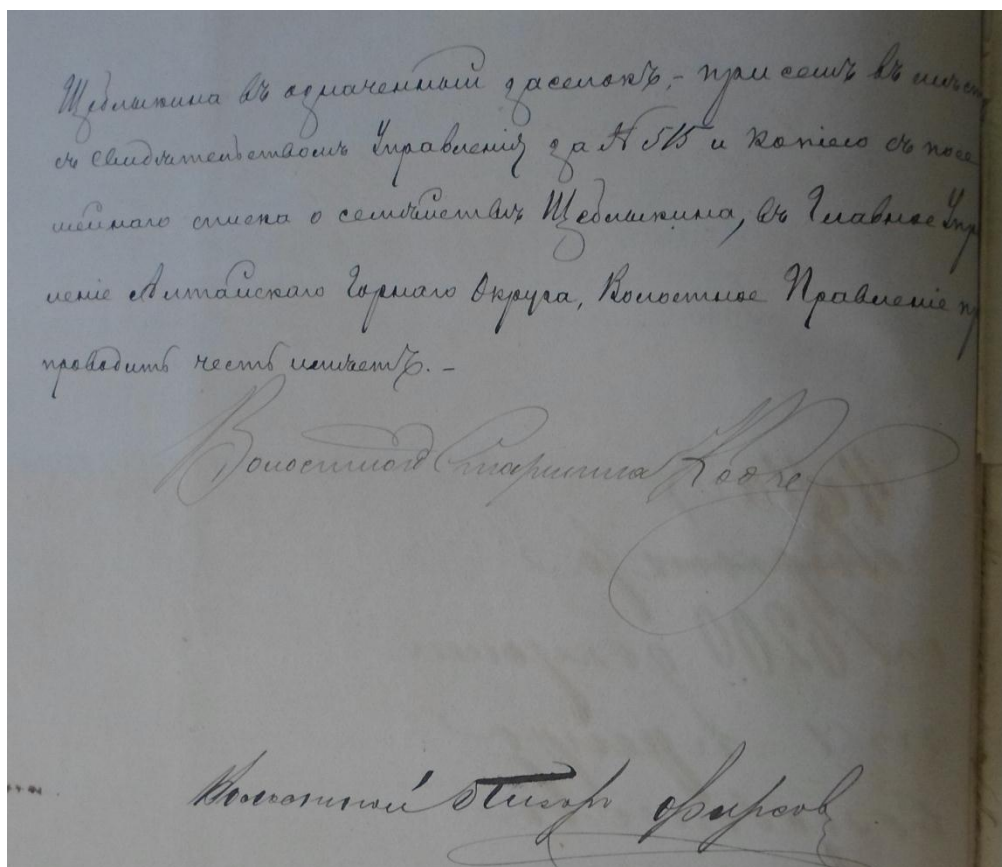 Щеблыкина въ означенный заселокъ, - при семъ въ мѣст
съ свидѣтельствомъ Управленія за № 515 и копіею съ посе
мейнаго списка о семѣйствѣ Щеблыкина, въ Главное Упр
леніе Алтайскаго Горнаго Округа, Волостное Правленіе пр
проводить честь имѣетъ. -
Волостной Старшина
Волостной Писарь Фирсов